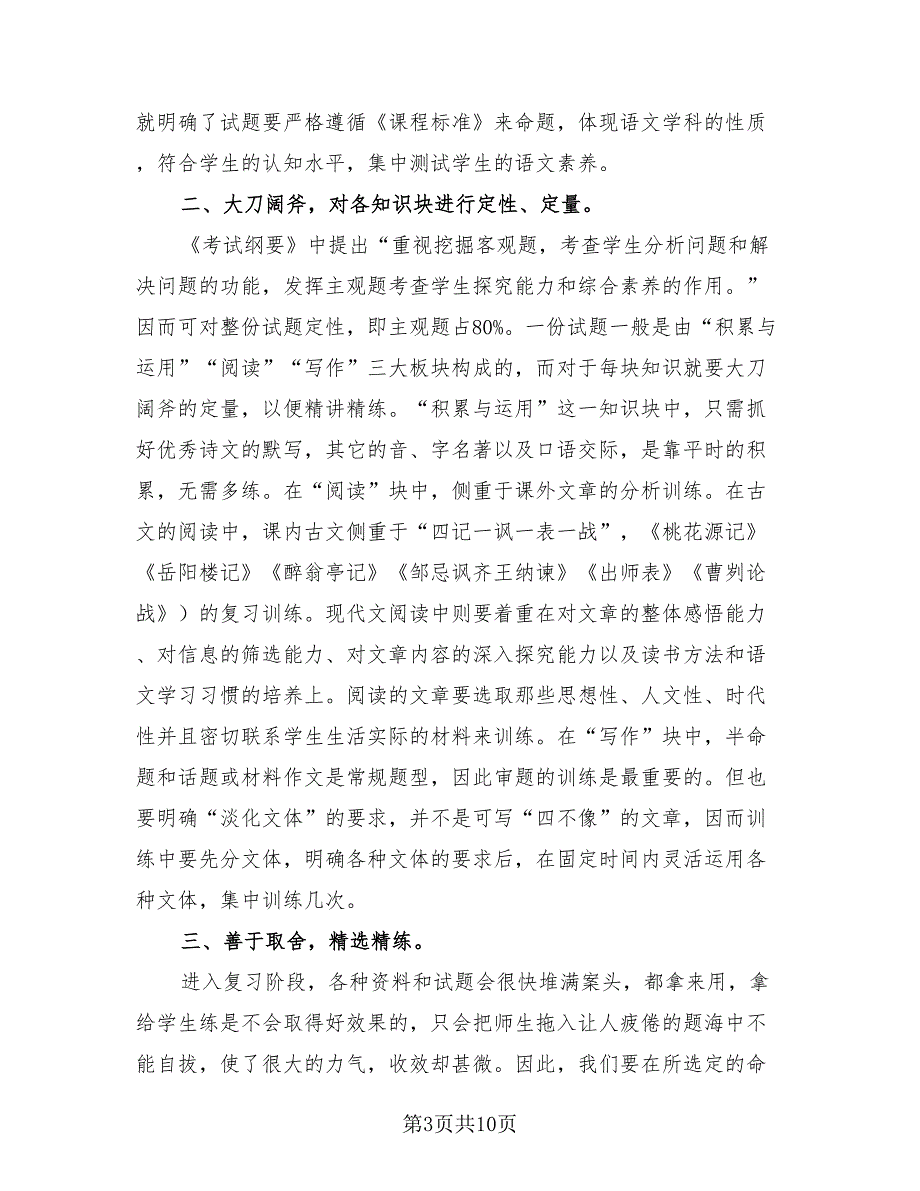 就明确了试题要严格遵循《课程标准》来命题，体现语文学科的性质
，符合学生的认知水平，集中测试学生的语文素养。
二、大刀阔斧，对各知识块进行定性、定量。
《考试纲要》中提出“重视挖掘客观题，考查学生分析问题和解
决问题的功能，发挥主观题考查学生探究能力和综合素养的作用。”
因而可对整份试题定性，即主观题占80%。一份试题一般是由“积累与
运用”“阅读”“写作”三大板块构成的，而对于每块知识就要大刀
阔斧的定量，以便精讲精练。“积累与运用”这一知识块中，只需抓
好优秀诗文的默写，其它的音、字名著以及口语交际，是靠平时的积
累，无需多练。在“阅读”块中，侧重于课外文章的分析训练。在古
文的阅读中，课内古文侧重于“四记一讽一表一战”，《桃花源记》
《岳阳楼记》《醉翁亭记》《邹忌讽齐王纳谏》《出师表》《曹刿论
战》）的复习训练。现代文阅读中则要着重在对文章的整体感悟能力
、对信息的筛选能力、对文章内容的深入探究能力以及读书方法和语
文学习习惯的培养上。阅读的文章要选取那些思想性、人文性、时代
性并且密切联系学生生活实际的材料来训练。在“写作”块中，半命
题和话题或材料作文是常规题型，因此审题的训练是最重要的。但也
要明确“淡化文体”的要求，并不是可写“四不像”的文章，因而训
练中要先分文体，明确各种文体的要求后，在固定时间内灵活运用各
种文体，集中训练几次。
三、善于取舍，精选精练。
进入复习阶段，各种资料和试题会很快堆满案头，都拿来用，拿
给学生练是不会取得好效果的，只会把师生拖入让人疲倦的题海中不
能自拔，使了很大的力气，收效却甚微。因此，我们要在所选定的命
第3页共10页